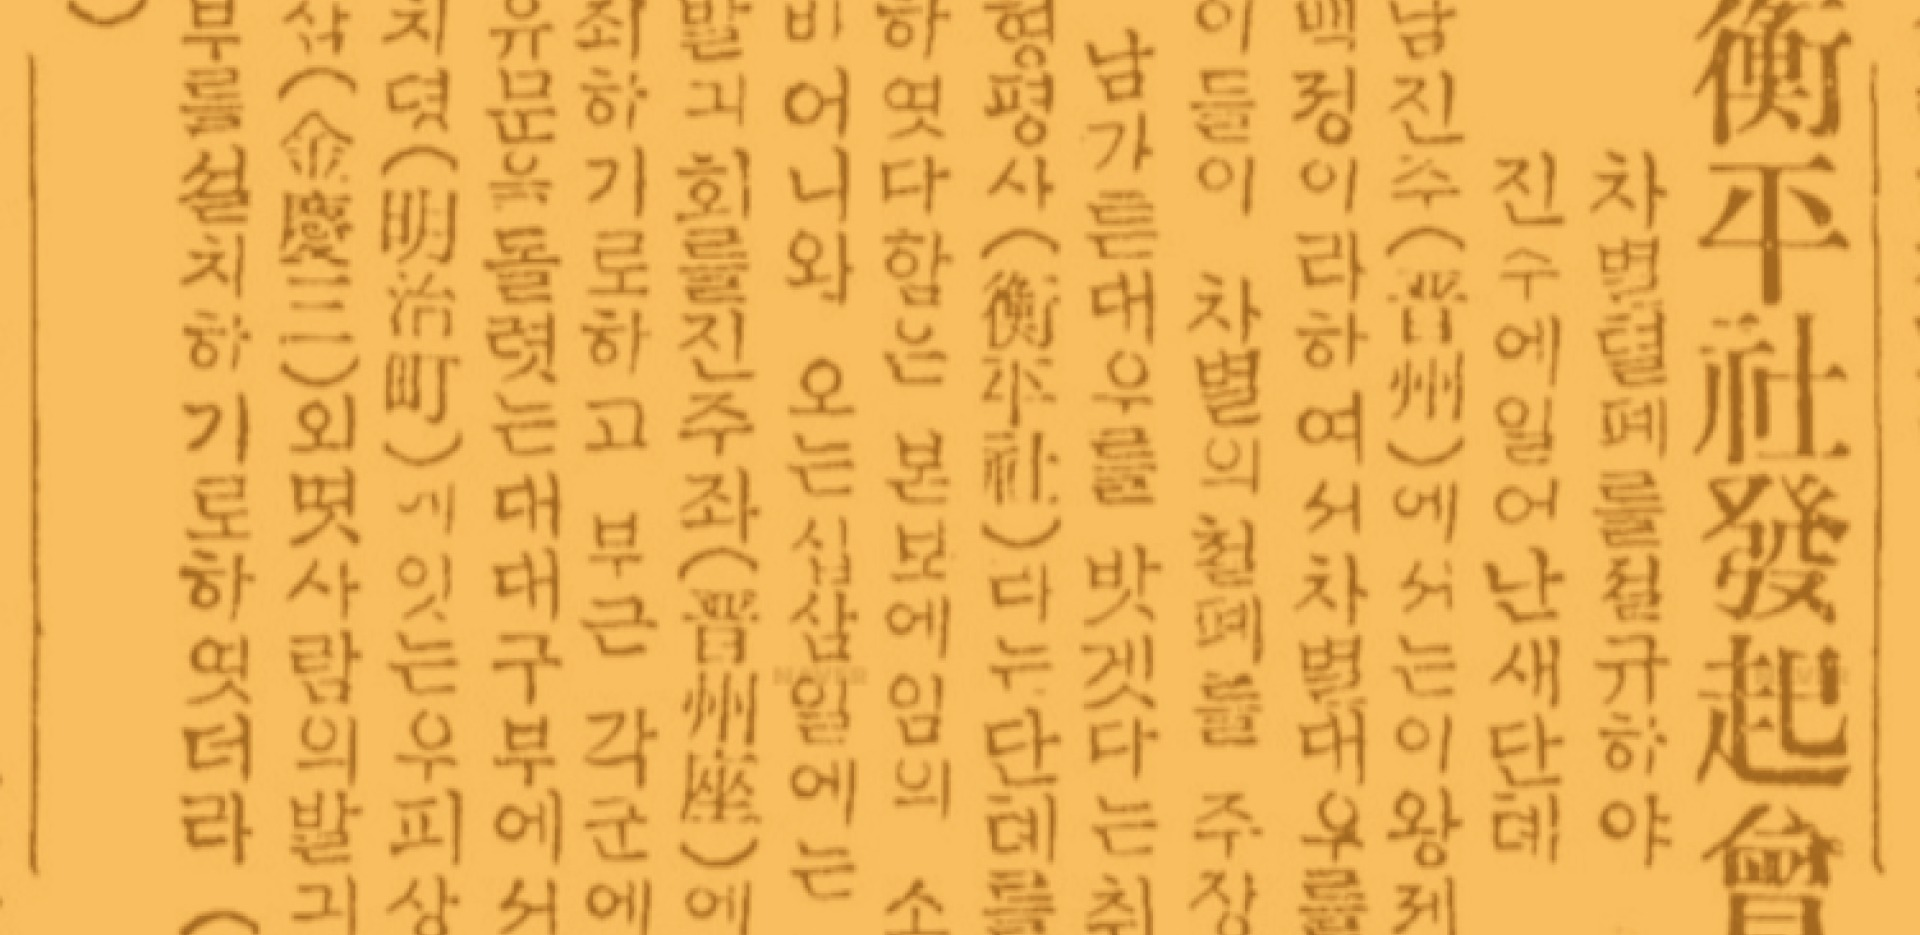 衡平社發起會
차별텰폐를절규하야
진주에일어난새단톄
남진주(晋州)에서는이왕케
백졍이라하여서차별대우를
이들이 차별의철폐를 주장
남가튼대우를 밧겟다는취
형평사(衡平社)다는단톄를
하엿다함은 본보에임의 소
비어니와 오는십삼일에는
발긔회를진주좌(晋州座)에
최하기로하고 부근 각군에
유문을돌렷는대대구부에서
치뎟(明治町)에잇는우피상
삼(金慶三)외몃사람의발긔
부를설치하기로하엿더라(